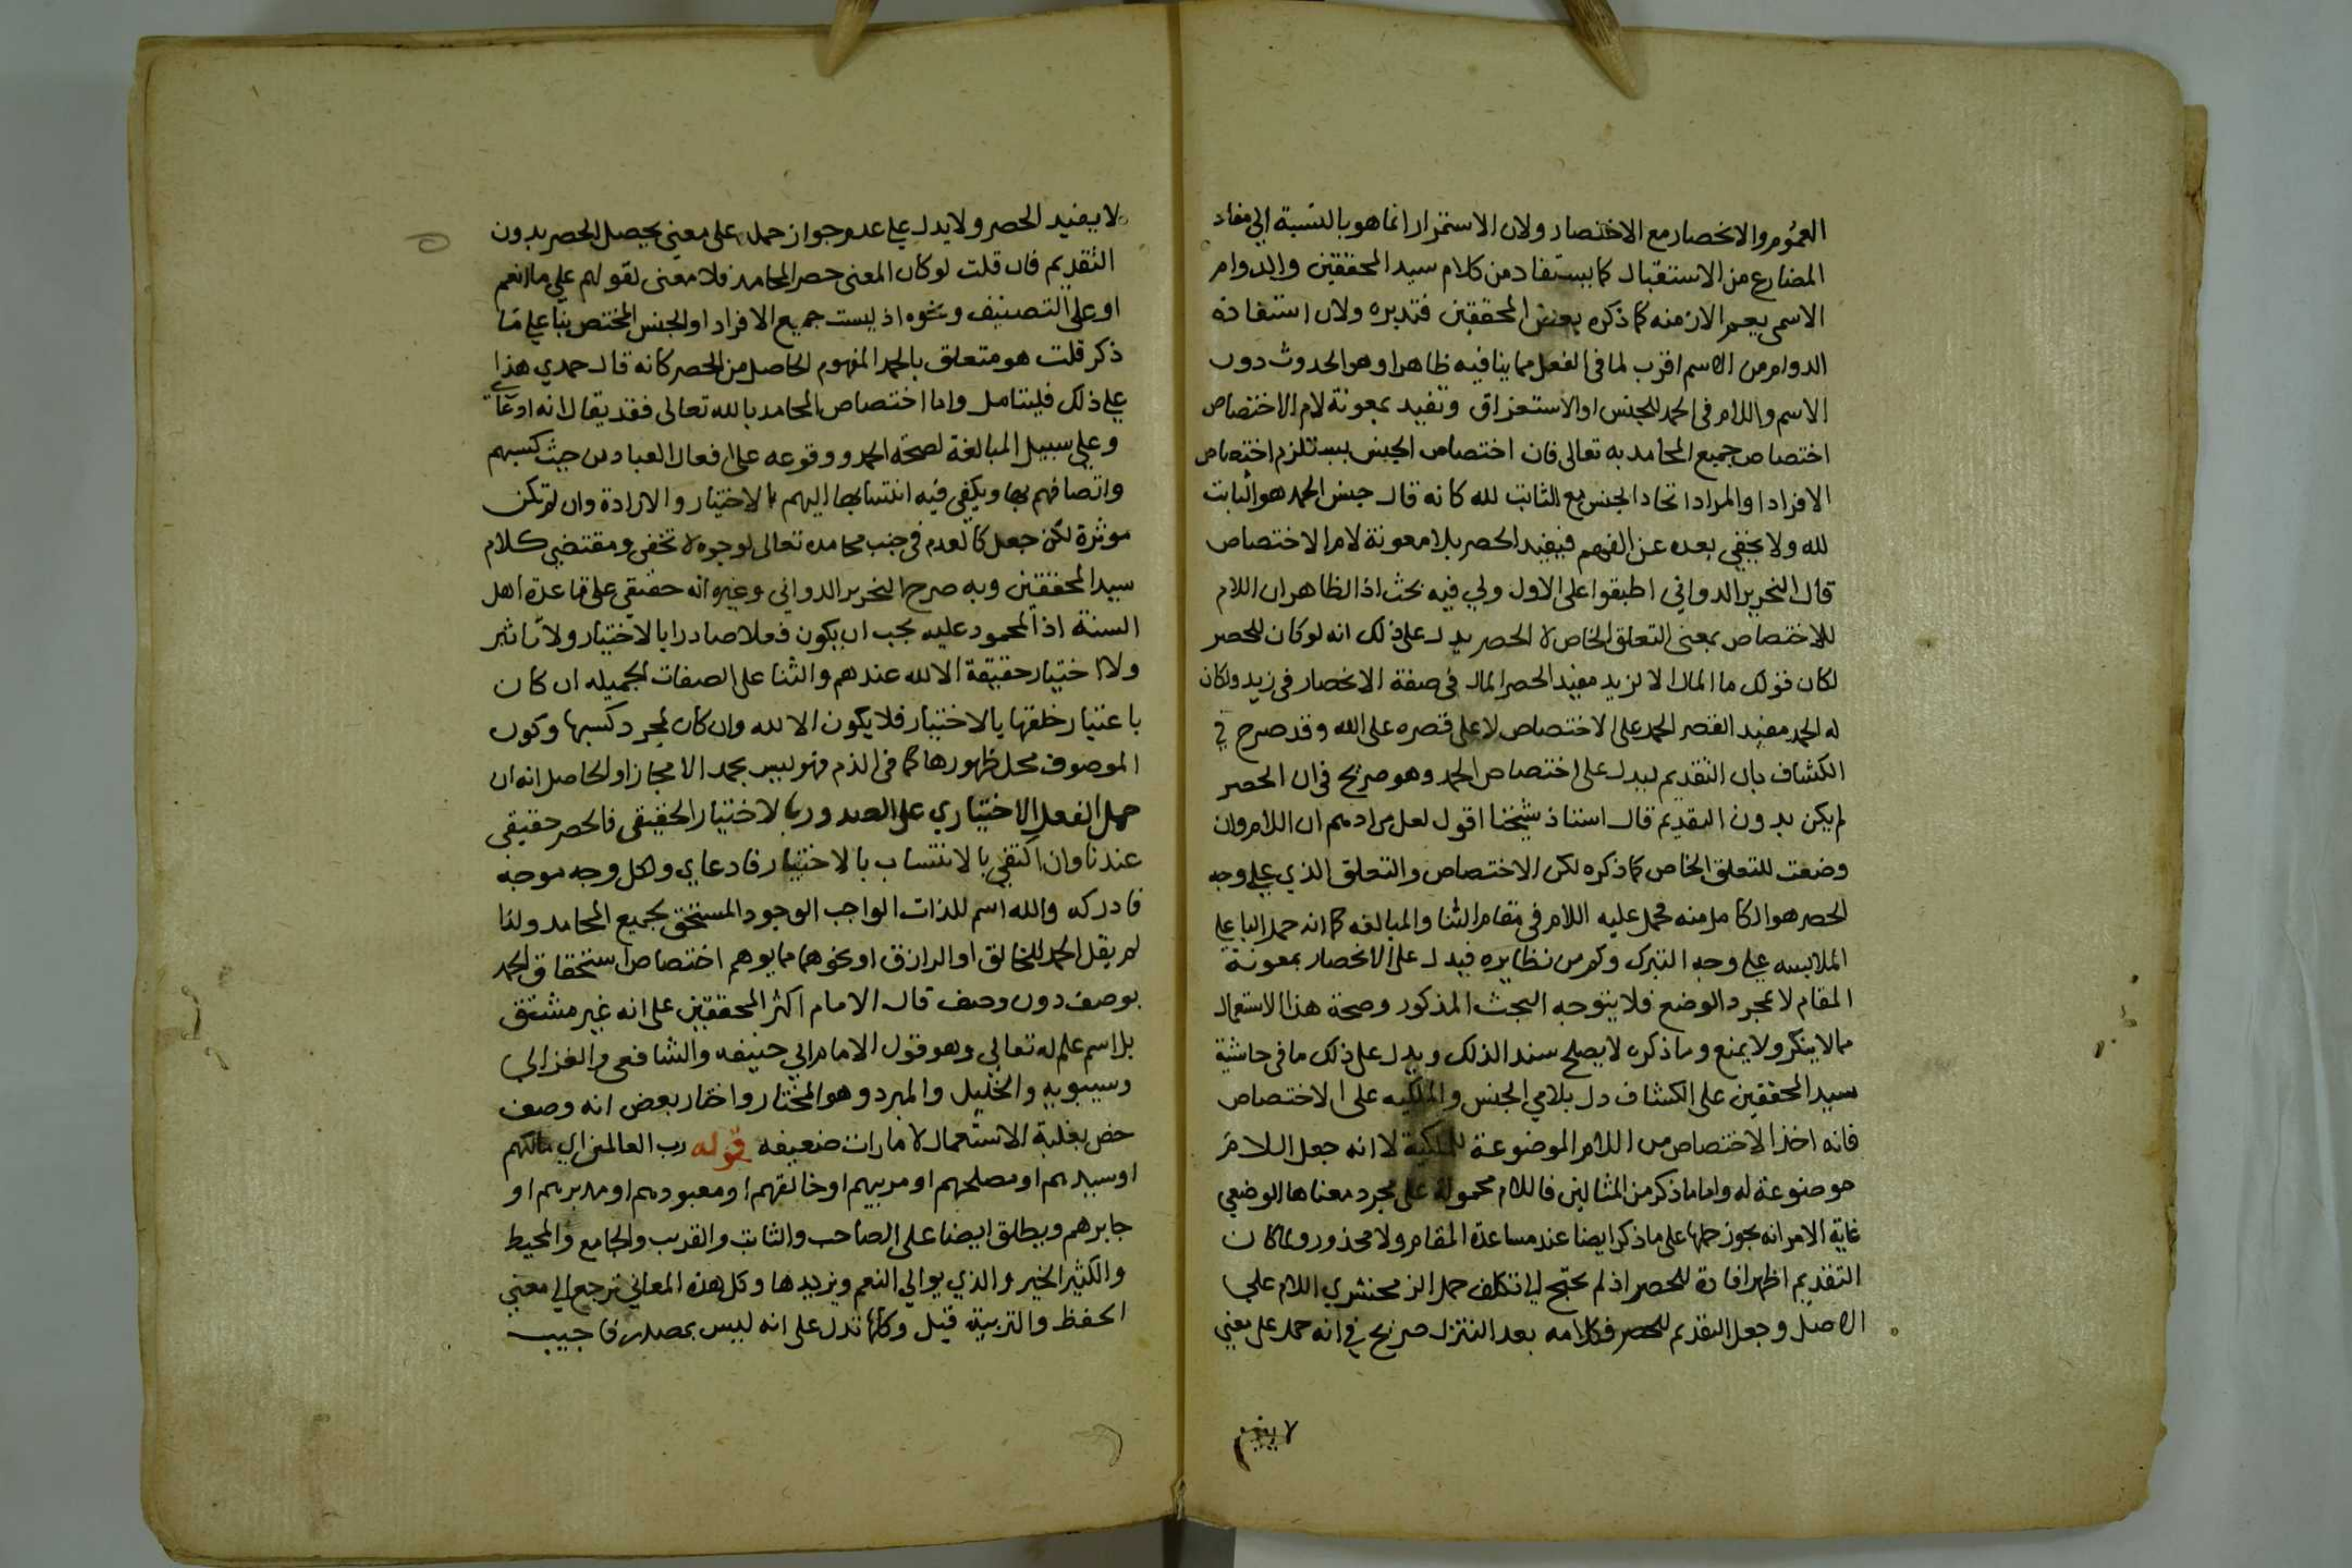 العموم والانحصار مع الاختصار ولان الاستمرار انما هو بالنسبة الى مفاد
المضارع من الاستقبال كما يستفاد من كلام سيد المحققين والدوام
الاسمى يعم الازمنه كما ذكره بعض المحققين فتدبره ولان استفادة
الدوام من الاسم اقرب لما فى الفعل مما ينافيه ظاهرا وهو الحدوث دون
الاسم واللام فى الحمد للجنس او الاستغراق وتفيد بمعونة لام الاختصاص
اختصاص جميع المحامد به تعالى فان اختصاص الجنس يستلزم اختصاص
الافراد او المراد اتحاد الجنس مع الثابت لله كانه قال جنس الحمد هو الثابت
لله ولا يخفى بعده عن الفهم فيفيد الحصر بلا معونة لام الاختصاص
قال النحرير الدوانى اطبقوا على الاول ولى فيه بحث اذ الظاهر ان اللام
للاختصاص بمعنى التعلق الخاص لا الحصر يدل على ذلك انه لو كان للحصر
لكان قولك ما المال الا لزيد مفيد الحصر المال فى صفة الانحصار فى زيد ولكان
له الحمد مفيد القصر الحمد على الاختصاص لا على قصره على الله وقد صرح في
الكشاف بان التقديم ليدل على اختصاص الحمد وهو صريح فى ان الحصر
لم يكن بدون التقديم قال استاذ شيخنا اقول لعل مرادهم ان اللام وان
وضعت للتعلق الخاص كما ذكره لكن الاختصاص والتعلق الذي على وجه
الحصر هو الكامل منه فحمل عليه اللام فى مقام الثنا والمبالغه كما انه حمل البا على
الملابسه على وجه التبرك وكم من نظايره فيدل على الانحصار بمعونة
المقام لا بمجرد الوضع فلا يتوجه البحث المذكور وصحة هذا الاستعمال
مما لا ينكر ولا يمنع وما ذكره لا يصلح سند الذلك ويدل على ذلك ما فى حاشية
سيد المحققين على الكشاف دل بلامي الجنس والملكيه على الاختصاص
فانه اخذ الاختصاص من اللام الموضوعة للملكية لا انه جعل اللام
موضوعة له واما ما ذكر من المثالين فاللام محمولة على مجرد معناها الوضعي
غاية الامر انه يجوز حملها على ما ذكر ايضا عند مساعدة المقام ولا محذور ولما كان
التقديم اظهر افادة للحصر اذ لم يحتج الى تكلف حمل الزمخشري اللام على
الاصل وجعل التقديم للحصر فكلامه بعد التنزل صريح فى انه حمل على معنى
لا يفيد
لا يفيد الحصر ولا يدل على عدم جواز حمله على معنى يحصل الحصر بدون
التقديم فان قلت لو كان المعنى حصر المحامد فلا معنى لقولهم على ما انعم
او على التصنيف ونحوه اذ ليست جميع الافراد او الجنس المختص بنا على ما
ذكر قلت هو متعلق بالحمد المفهوم الحاصل من الحصر كانه قال حمدي هذا
على ذلك فليتامل واما اختصاص المحامد بالله تعالى فقد يقال انه ادعائى
وعلى سبيل المبالغة لصحة الحمد ووقوعه على افعال العباد من حيث كسبهم
واتصافهم بها ويكفى فيه انتسابها اليهم بالاختيار والارادة وان لم تكن
موثرة لكن جعل كالعدم فى جنب محامده تعالى لوجوه لا تخفى ومقتضى كلام
سيد المحققين وبه صرح النحرير الدوانى وغيره انه حقيقى على قاعدة اهل
السنة اذ المحمود عليه يجب ان يكون فعلا صادرا بالاختيار ولا تاثير
ولا اختيار حقيقة الا لله عندهم والثنا على الصفات الجميله ان كان
باعتبار خلقها بالاختيار فلا يكون الا لله وان كان لمجرد كسبها وكون
الموصوف محل ظهورها كما فى الذم فهو ليس بحمد الا مجازا والحاصل انه ان
حمل الفعل الاختياري على الصدور بالاختيار الحقيقى فالحصر حقيقى
عندنا وان اكتفى بالانتساب بالاختيار فادعاي ولكل وجه موجه
فادركه والله اسم للذات الواجب الوجود المستحق لجميع المحامد ولذا
لم يقل الحمد للخالق او الرازق او نحوهما مما يوهم اختصاص استحقاق الحمد
بوصف دون وصف قال الامام اكثر المحققين على انه غير مشتق
بل اسم علم له تعالى وهو قول الامام ابي حنيفه والشافعى والغزالى
وسيبويه والخليل والمبرد وهو المختار واختار بعض انه وصف
خص بغلبة الاستعمال لامارات ضعيفه قوله رب العالمين اي مالكهم
او سيدهم او مصلحهم او مربيهم او خالقهم او معبودهم او مدبرهم او
جابرهم ويطلق ايضا على الصاحب والثابت والقريب والجامع والمحيط
والكثير الخير والذي يوالي النعم ويزيدها وكل هذه المعاني ترجع الى معنى
الحفظ والتربية قيل وكلها تدل على انه ليس بمصدر فاجيب